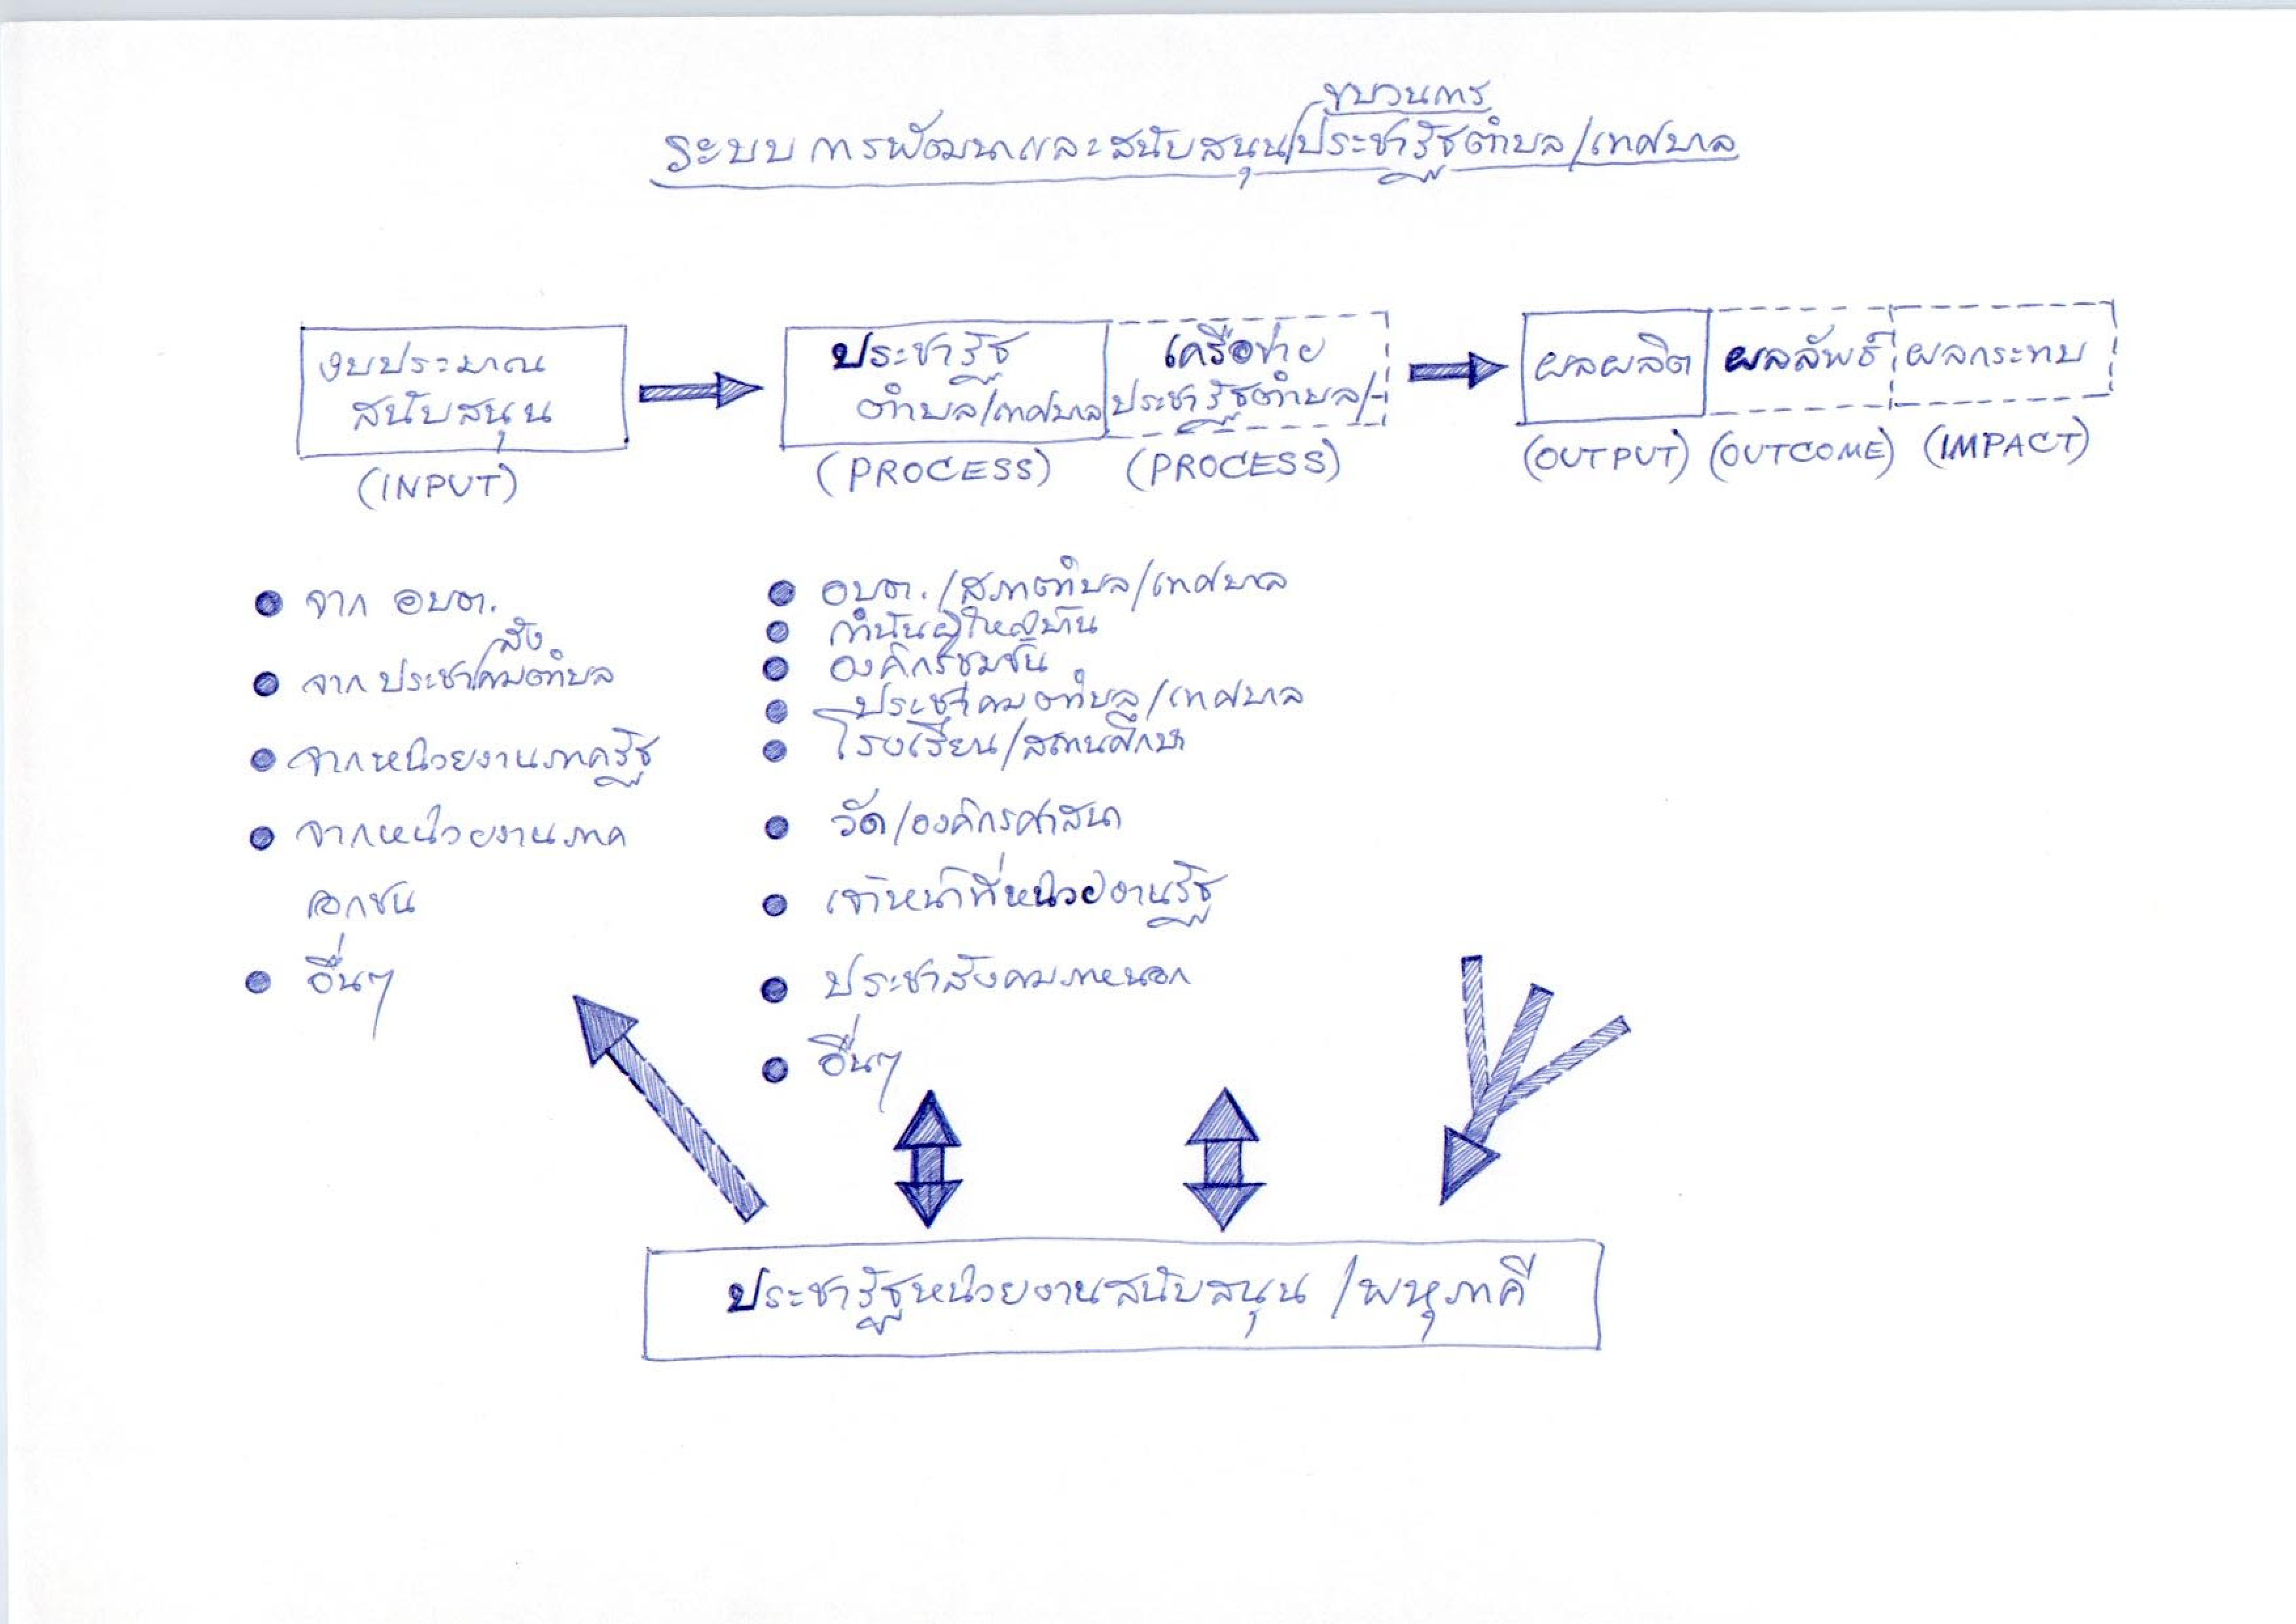 ขบวนการ
ระบบการพัฒนาและสนับสนุน/ประชารัฐตำบล/เทศบาล
งบประมาณ
สนับสนุน
(INPUT)
ประชารัฐ
ตำบล/เทศบาล
(PROCESS)
เครือข่าย
ประชารัฐตำบล/-
(PROCESS)
ผลผลิต
(OUTPUT)
ผลลัพธ์
(OUTCOME)
ผลกระทบ
(IMPACT)
จาก อบต.
สัง
จากประชา/คมตำบล
จากหน่วยงานภาครัฐ
จากหน่วยงานภาค
เอกชน
อื่นๆ
อบต./สภาตำบล/เทศบาล
กำนันผู้ใหญ่บ้าน
องค์กรชุมชน
ประชาคมตำบล/เทศบาล
โรงเรียน/สถานศึกษา
วัด/องค์กรศาสนา
เจ้าหน้าที่หน่วยงานรัฐ
ประชาสังคมภายนอก
อื่นๆ
ประชารัฐหน่วยงานสนับสนุน/พหุภาคี